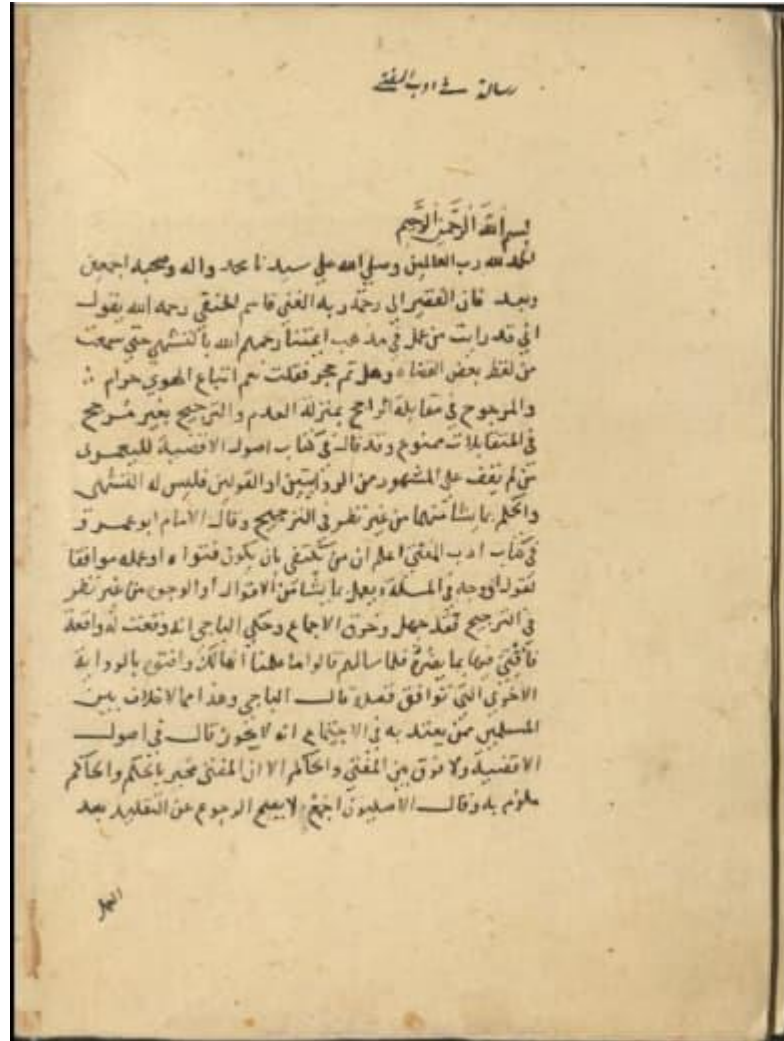 رسالة في ادب المفتي
بسم الله الرحمن الرحيم
الحمد لله رب العالمين وصلي الله علي سيدنا محمد واله وصحبه اجمعين
وبعد فان الفقير الي رحمة ربه الغني قاسم الحنفي رحمه الله يقول
اني قد رايت من عمل في مذهب ايمتنا رحمهم الله بالتشهي حتي سمعت
من لفظ بعض القضاه وهل ثم حجر فقلت نعم اتباع الهوي حرام
والمرجوح في مقابلة الراجح بمنزلة العدم والترجيح بغير مرجح
في المتقابلات ممنوع وقد قال في كتاب اصول الاقضية لليعمري
من لم يقف علي المشهور من الروايتين او القولين فليس له التشهي
والحكم بما يشا منهما من غير نظر في الترجيح وقال الامام ابو عمرو
في كتاب ادب المفتي اعلم ان من يكتفي بان يكون فتواه او عمله موافقا
لقول او وجه في المسئلة ويعمل بما يشا من الاقوال او الوجوه من غير نظر
في الترجيح فقد جهل وخرق الاجماع وحكي الباجي انه وقعت له واقعة
فافتي فيها بما يضره فلما سالهم قالوا ما علمنا انها لك وافتوه بالرواية
الاخري التي توافق قصده قال الباجي وهذا مما لا خلاف بين
المسلمين ممن يعتد به في الاجماع انه لا يجوز قال في اصول
الاقضية ولا فرق بين المفتي والحاكم الا ان المفتي مخبر بالحكم والحاكم
ملزم به وقال الاصليون اجمع لا يصح الرجوع عن التقليد بعد
العمل